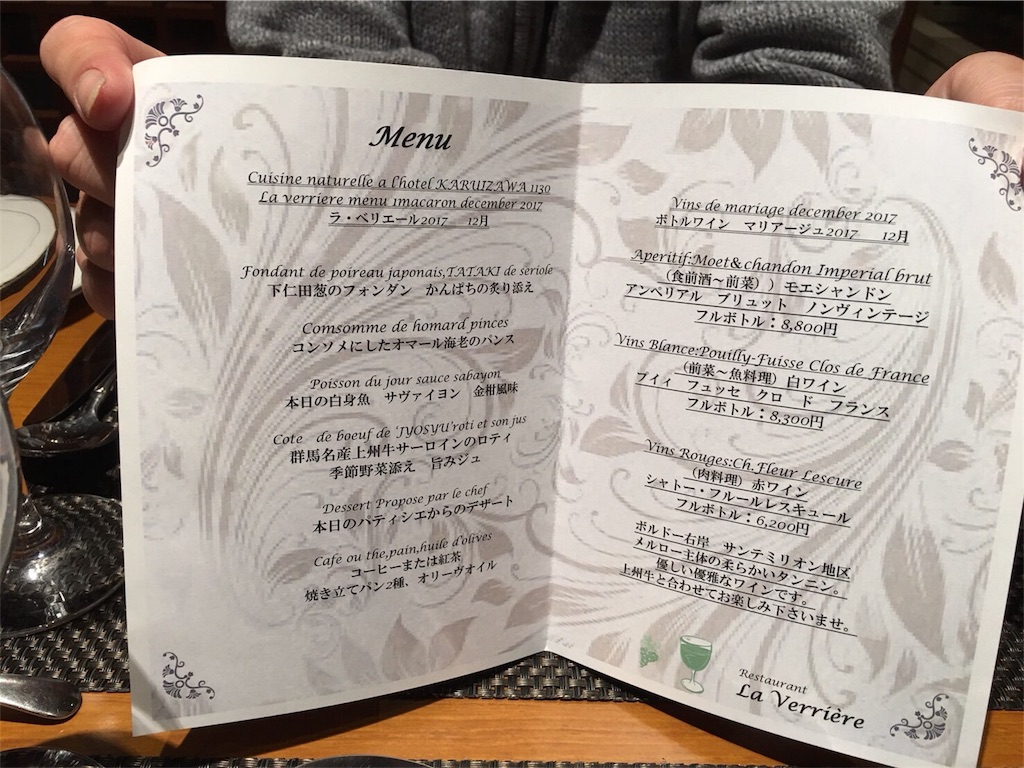 Menu
Cuisine naturelle a l'hotel KARUIZAWA 1130
La verriere menu 1macaron december 2017
ラ・ベリエール2017 12月
Fondant de poireau japonais,TATAKI de seriole
下仁田葱のフォンダン かんぱちの炙り添え
Comsomme de homard pinces
コンソメにしたオマール海老のパンス
Poisson du jour sauce sabayon
本日の白身魚 サヴァイヨン 金柑風味
Cote de boeuf de 'JYOSYU'roti et son jus
群馬名産上州牛サーロインのロティ
季節野菜添え 旨みジュ
Dessert Propose par le chef
本日のパティシエからのデザート
Cafe ou the,pain,huile d'olives
コーヒーまたは紅茶
焼き立てパン2種、オリーヴオイル
Vins de mariage december 2017
ボトルワイン マリアージュ2017 12月
Aperitif:Moet&chandon Imperial brut
（食前酒～前菜））モエシャンドン
アンペリアル ブリュット ノンヴィンテージ
フルボトル：8,800円
Vins Blance:Pouilly-Fuisse Clos de France
（前菜～魚料理）白ワイン
プイィ フュッセ クロ ド フランス
フルボトル：8,300円
Vins Rouges:Ch.Fleur Lescure
（肉料理）赤ワイン
シャトー・フルールレスキュール
フルボトル：6,200円
ボルドー右岸 サンテミリオン地区
メルロー主体の柔らかいタンニン。
優しい優雅なワインです。
上州牛と合わせてお楽しみ下さいませ。
Restaurant
La Verrière